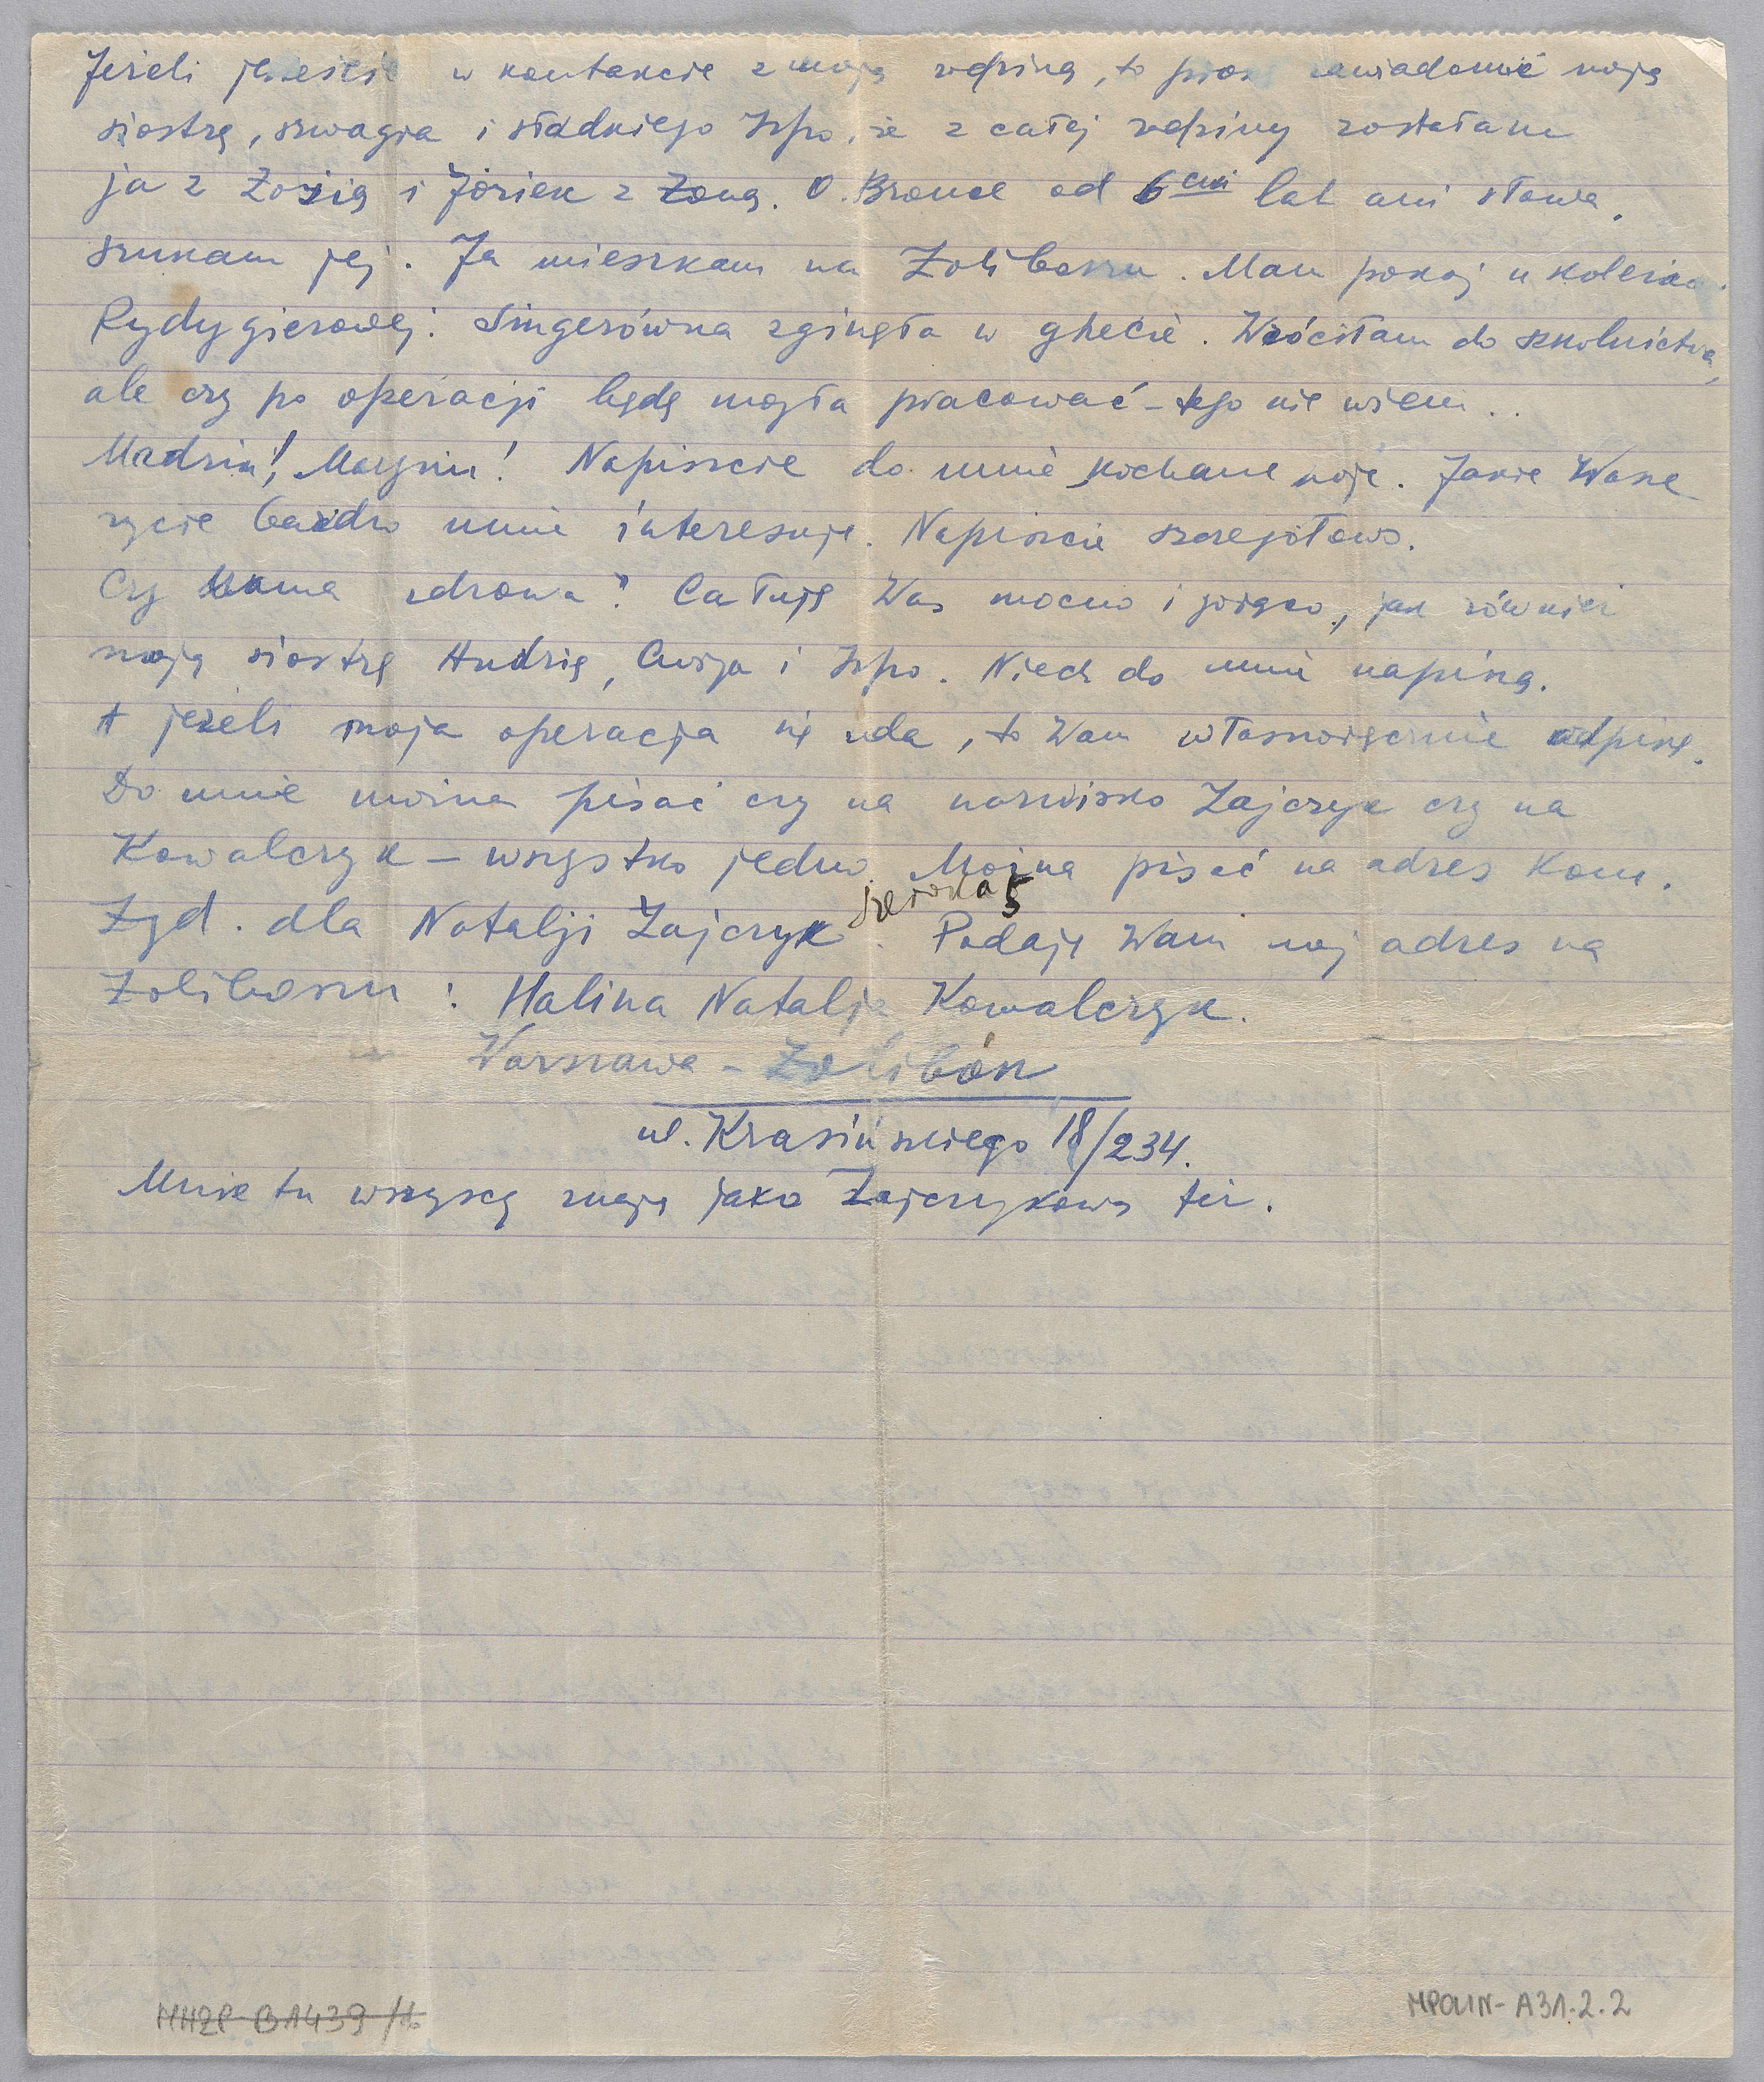 Jeżeli jesteście w kontakcie z moją rodziną, to proszę zawiadomić moją
siostrę, szwagra i sładkiego Izpo, że z całej rodziny zostałam
ja z Zosią i Józiek z Żoną. O Bronce od 6ciu lat ani słowa,
szukam jej. Ja mieszkam na Żoliborzu. Mam pokój u koleżanki
Rydygierowej. Singerówna zginęła w ghecie. Wróciłam do szkolnictwa,
ale czy po operacji będę mogła pracować – tego nie wiem..
Madziu! Marysiu! Napiszcie do mnie kochane moje. Jakie Wasze
życie bardzo mnie interesuje. Napiszcie szczegółowo.
Czy Mama zdrowa? Całuję Was mocno i gorąco, jak również
moją siostrę Andzię, i Izpo. Niech do mnie napiszą.
A jeżeli moja operacja się uda, to Wam własnoręcznie odpiszę.
Do mnie można pisać czy na nazwisko Zajczyk czy na
Kowalczyk – wszystko jedno. Można pisać na adres Kom.
Żyd. dla Natalji Zajczyk Szeroka 5. Podaję Wam mój adres na
Żoliborzu: Halina Natalja Kowalczyk.
Warszawa – Żolibórz
ul. Krasińskiego 18/234.
Mnie tu wszyscy znają jako Zajczykową też.
MHŻP B1439/1b
MPOLIN-A31.2.2